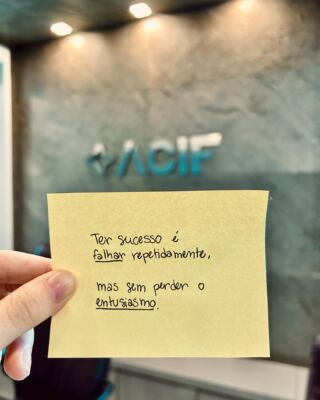 +ACIF
Ter sucesso é
falhar repetidamente,
mas sem perder o
entusiasmo.